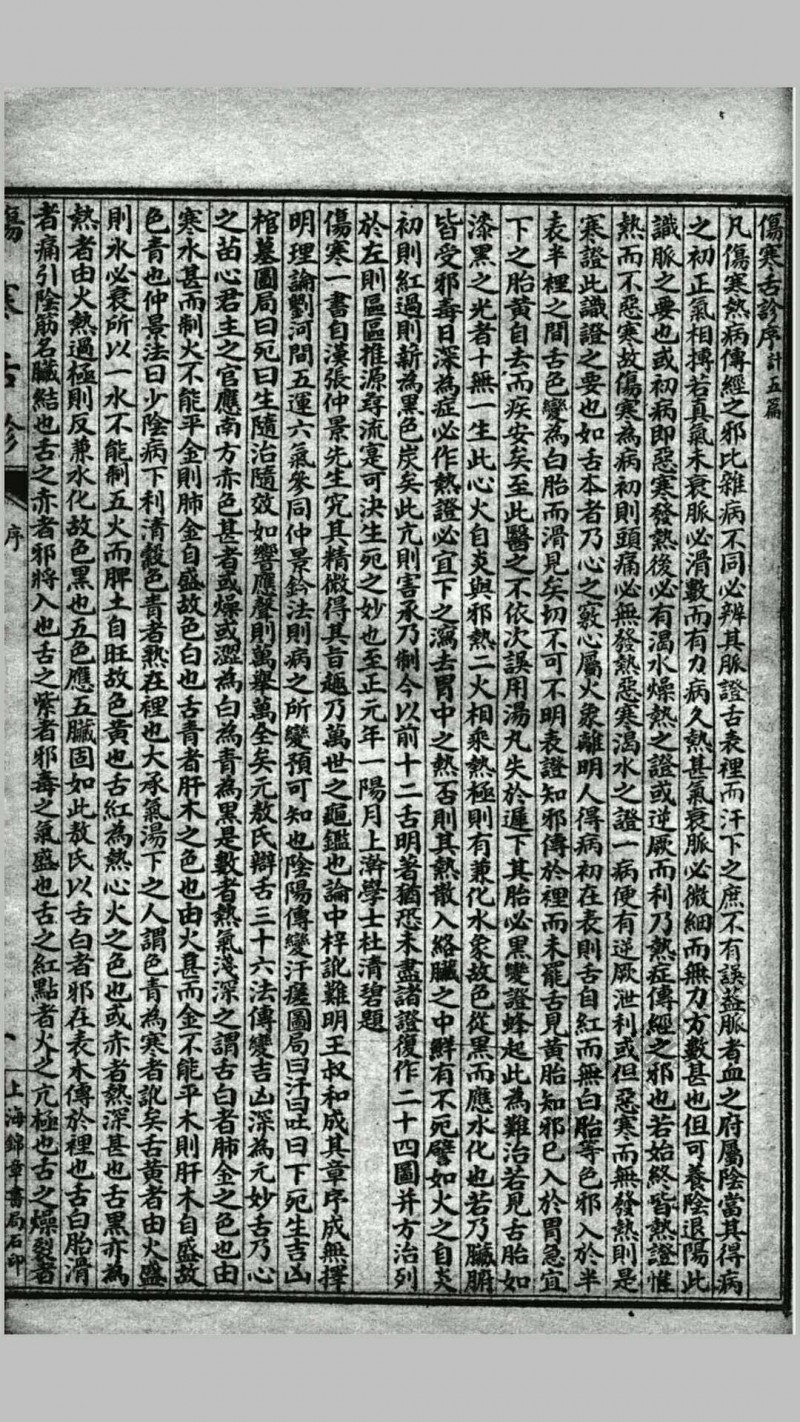 傷寒舌診序計五篇
凡傷寒熱病傳經之邪比雜病不同必辨其脈證舌表裡而汗下之庶不有誤蓋脈者血之府屬陰當其得病
之初正氣相搏若真氣未衰脈必滑數而有力病久熱甚氣衰脈必微細而無力方數甚也但可養陰退陽此
識脈之要也或初病即惡寒發熱後必有渴水燥熱之證或逆厥而利乃熱症傳經之邪也若始終皆熱證惟
熱而不惡寒故傷寒為病初則頭痛必無發熱惡寒渴水之證一病便有逆厥泄利或但惡寒而無發熱則是
寒證此識證之要也如舌本者乃心之竅心屬火象離明人得病初在表則舌自紅而無白胎等色邪入於半
表半裡之間舌色變為白胎而滑見矣切不可不明表證知邪傳於裡而未罷舌見黃胎知邪已入於胃急宜
下之胎黃自去而疾安矣至此醫之不依次誤用湯丸失於遲下其胎必黑變證蜂起此為難治若見舌胎如
漆黑之光者十無一生此心火自炎與邪熱二火相乘熱極則有兼化水象故色從黑而應水化也若乃臟腑
皆受邪毒日深為症必作熱證必宜下之瀉去胃中之熱否則其熱散入絡臟之中鮮有不死譬如火之自炎
初則紅過則薪為黑色炭矣此亢則害承乃制今以前十二舌明著猶恐未盡諸證復作二十四圖并方治列
於左則區區推源尋流寔可決生死之妙也至正元年一陽月上澣學士杜清碧題
傷寒一書自漢張仲景先生究其精微得其旨趣乃萬世之龜鑑也論中梓訛難明王叔和成其章序成無擇
明理論劉河間五運六氣參同仲景鈐法則病之所變預可知也陰陽傳變汗瘥圖局曰汗曰吐曰下死生吉凶
棺墓圖局曰死曰生隨治隨效如響應聲則萬舉萬全矣元敖氏辯舌三十六法傳變吉凶深為元妙舌乃心
之苗心君主之官應南方赤色甚者或燥或澀為白為青為黑是數者熱氣淺深之謂舌白者肺金之色也由
寒水甚而制火不能平金則肺金自盛故色白也舌青者肝木之色也由火甚而金不能平木則肝木自盛故
色青也仲景法曰少陰病下利清穀色青者熱在裡也大承氣湯下之人謂色青為寒者訛矣舌黃者由火盛
則水必衰所以一水不能制五火而脾土自旺故色黃也舌紅為熱心火之色也或赤者熱深甚也舌黑亦為
熱者由火熱過極則反兼水化故色黑也五色應五臟固如此敖氏以舌白者邪在表未傳於裡也舌白胎滑
者痛引陰筋名臟結也舌之赤者邪將入也舌之紫者邪毒之氣盛也舌之紅點者火之亢極也舌之燥裂者
傷寒舌診
序
一
上海錦章書局石印